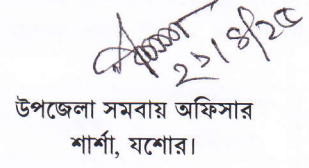 ২১/৪/২৫
উপজেলা সমবায় অফিসার
শার্শা, যশোর।